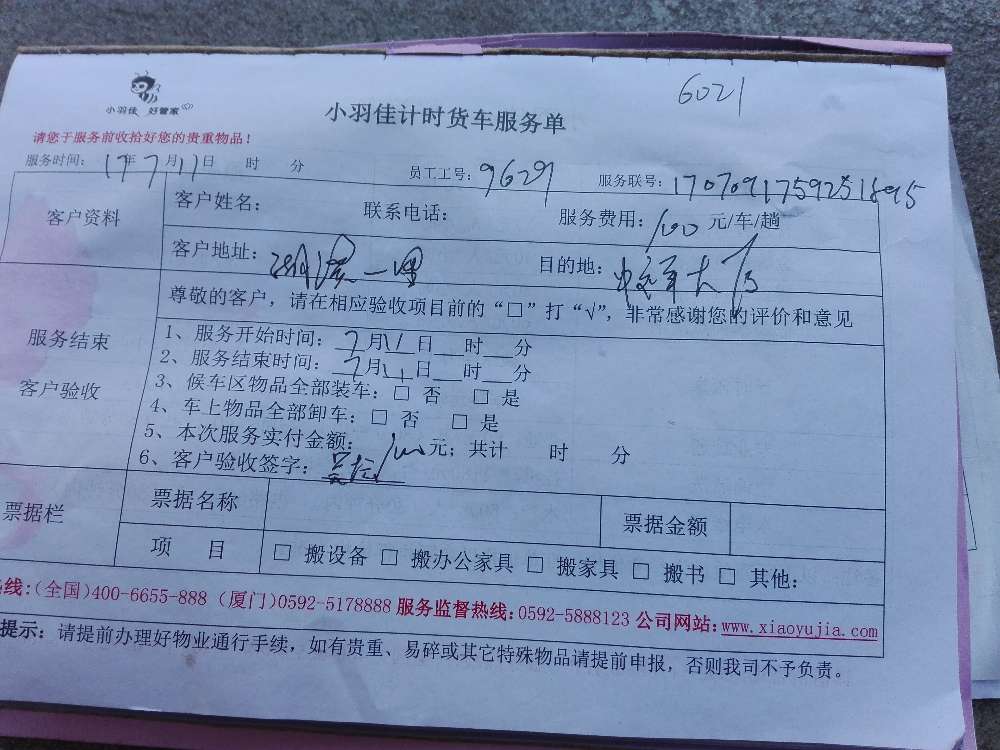 6021
小羽佳 好管家
小羽佳计时货车服务单
请您于服务前收拾好您的贵重物品！
服务时间：17年7月11日 时 分 员工工号：9629 服务联号：
客户资料
客户姓名： 联系电话： 服务费用：100元/车/趟
客户地址： 一里 目的地：
服务结束
客户验收
尊敬的客户，请在相应验收项目前的“□”打“√”，非常感谢您的评价和意见
1、服务开始时间：7月11日__时__分
2、服务结束时间：7月11日__时__分
3、候车区物品全部装车：□ 否 □ 是
4、车上物品全部卸车：□ 否 □ 是
5、本次服务实付金额：100元；共计 时 分
6、客户验收签字：
票据栏
票据名称 票据金额
项 目 □ 搬设备 □ 搬办公家具 □ 搬家具 □ 搬书 □ 其他：
线：(全国)400-6655-888 (厦门)0592-5178888 服务监督热线：0592-5888123 公司网站：www.xiaoyujia.com
提示：请提前办理好物业通行手续，如有贵重、易碎或其它特殊物品请提前申报，否则我司不予负责。